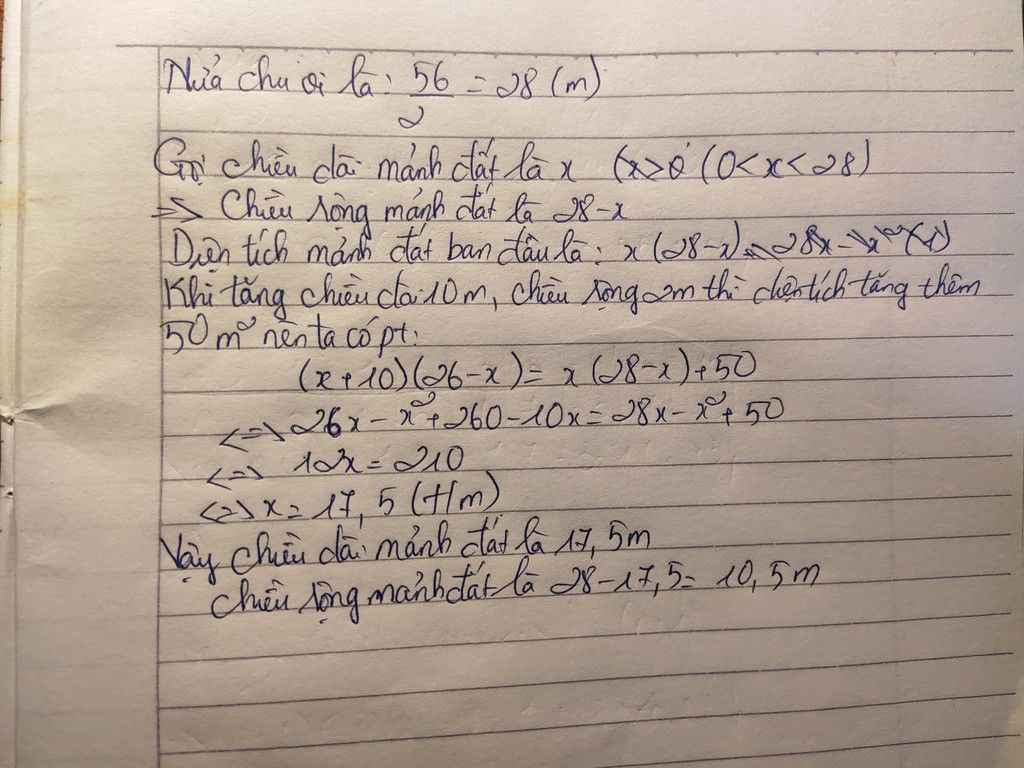 Nửa chu vi là: 56/2 = 28 (m)
Gọi chiều dài mảnh đất là x (x>0 (0<x<28)
=> Chiều rộng mảnh đất là 28-x
Diện tích mảnh đất ban đầu là: x(28-x) = 28x - x²
Khi tăng chiều dài 10m, chiều rộng 2m thì diện tích tăng thêm
50m² nên ta có pt:
(x+10)(26-x) = x(28-x)+50
<=> 26x - x² + 260 - 10x = 28x - x² + 50
<=> 12x = 210
<=> x = 17,5 (t/m)
Vậy chiều dài mảnh đất là 17,5m
chiều rộng mảnh đất là 28-17,5 = 10,5m